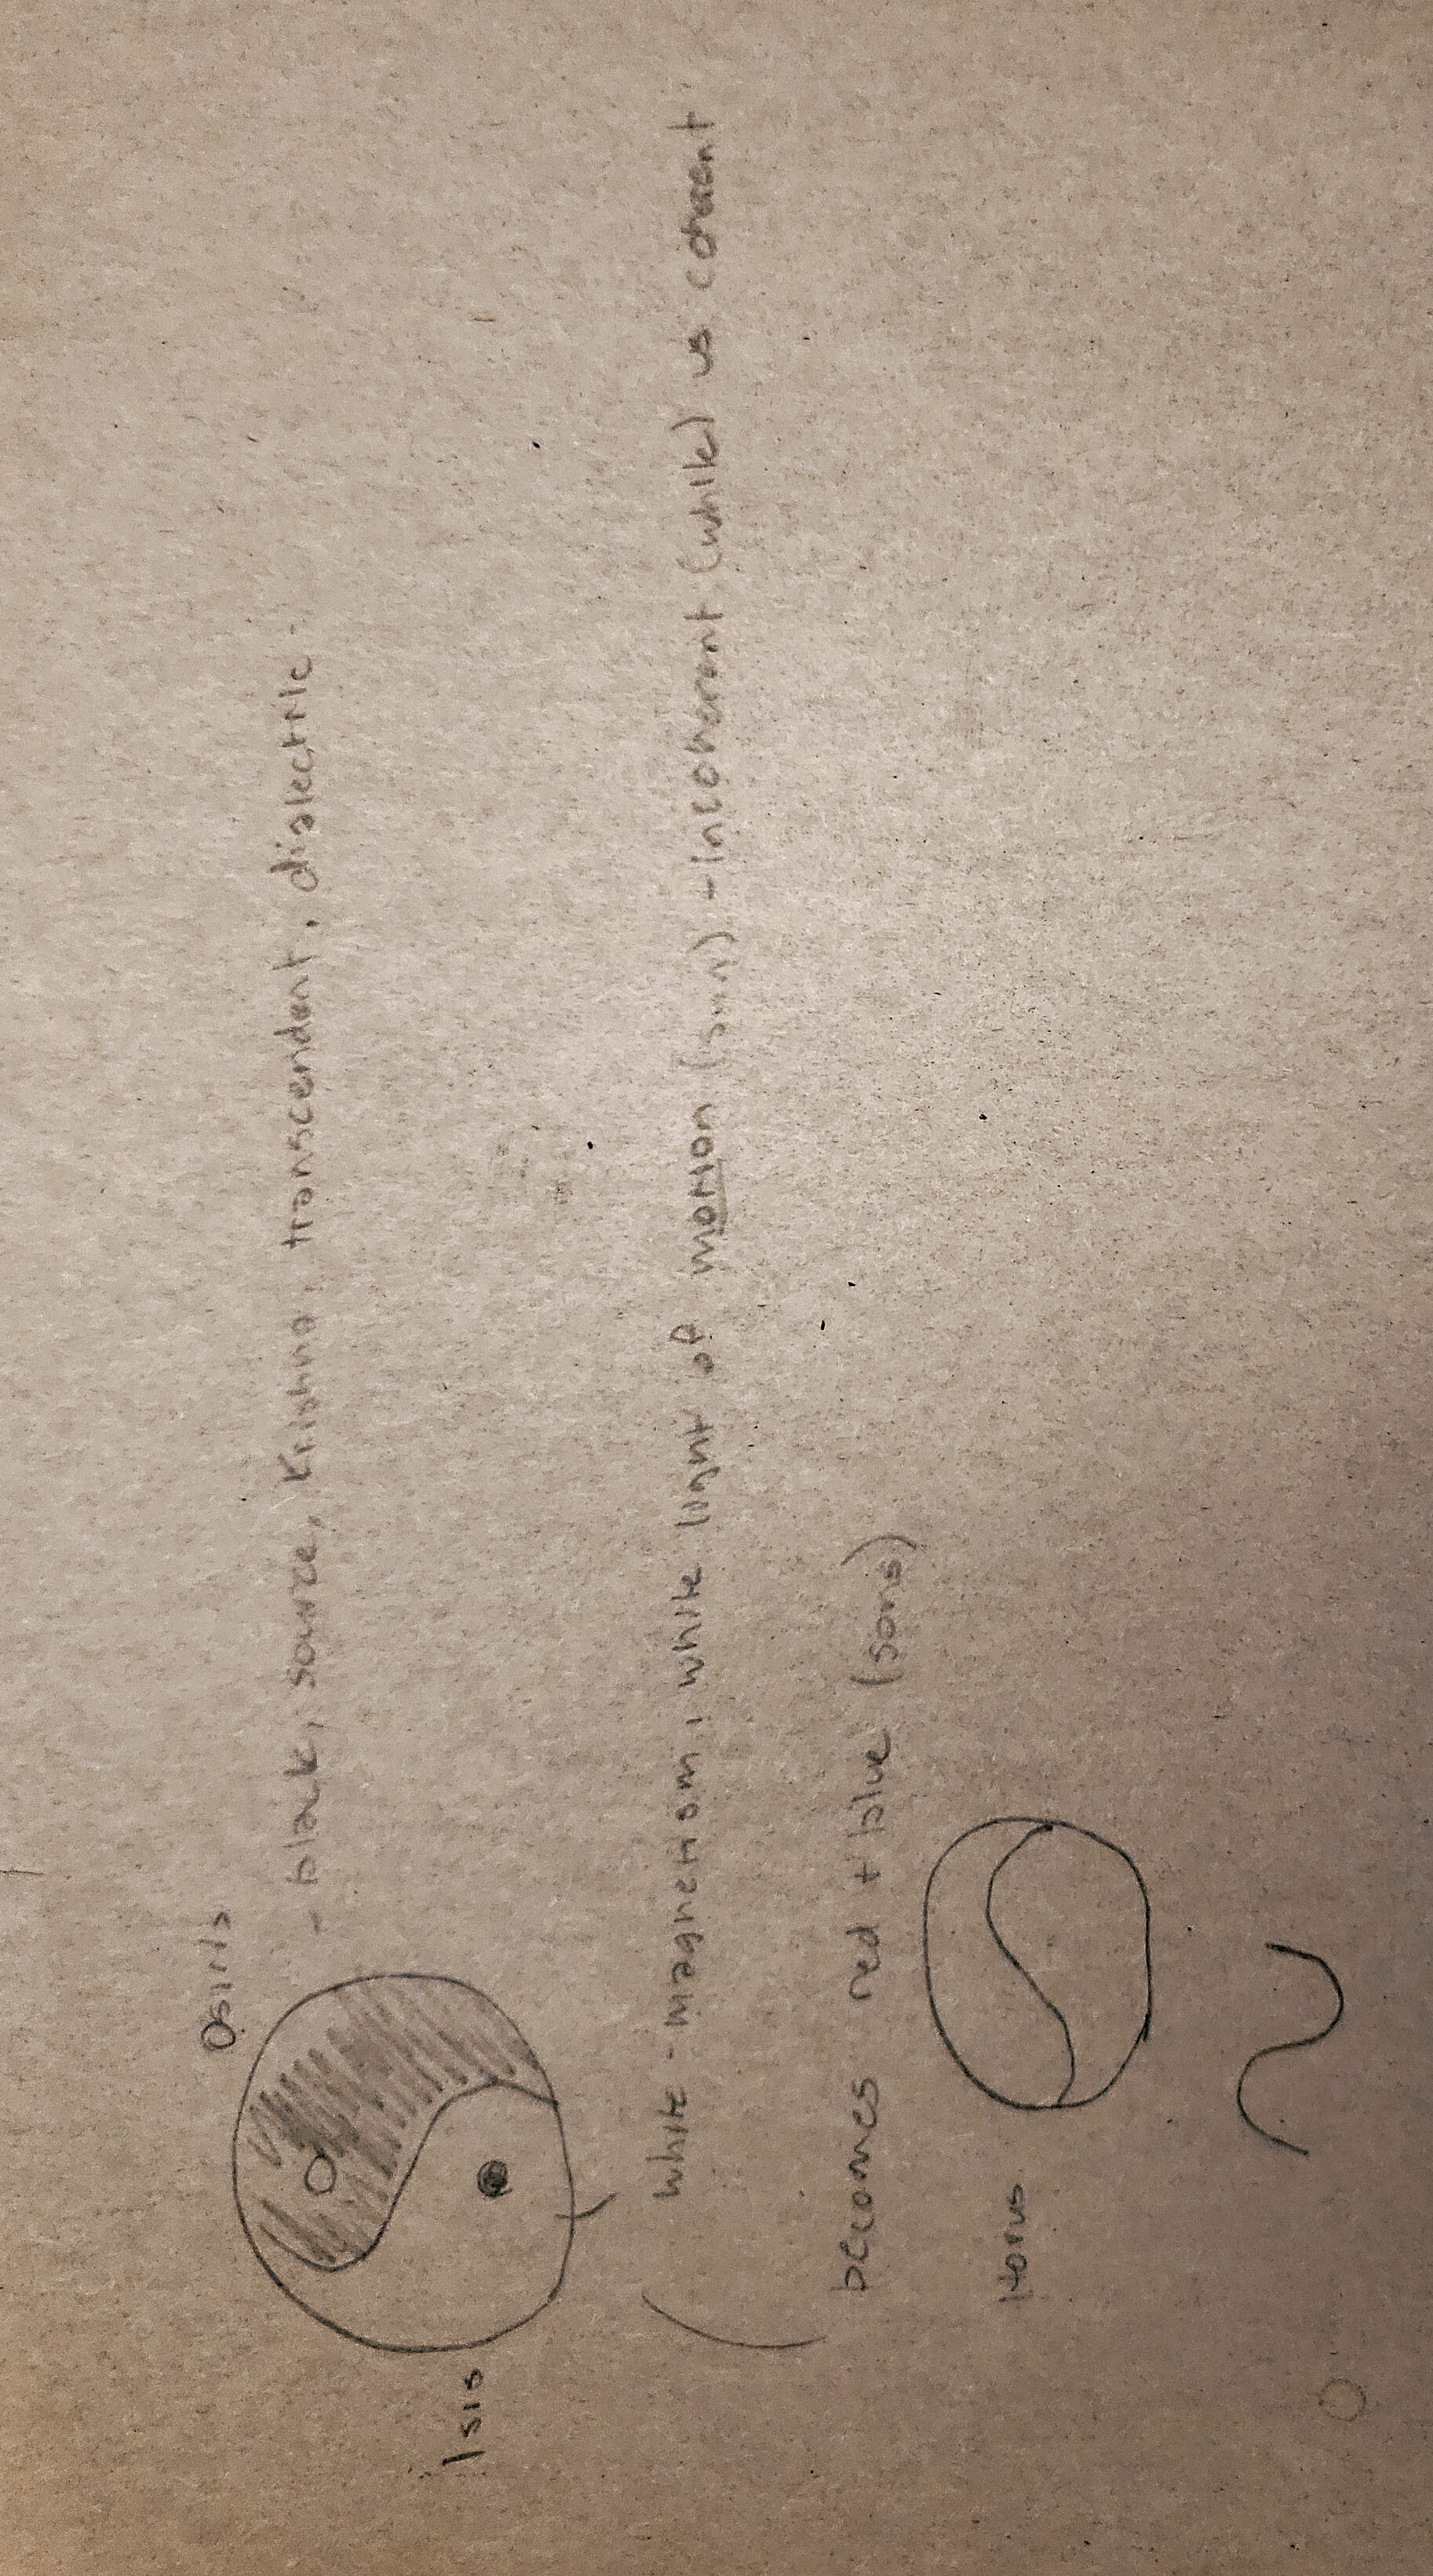 Osiris
- black, source, Krishna, transcendant, dielectric
Isis
white - magnetism, white light of motion (sun) - incoherent (white) vs coherent
becomes red + blue (sons)
torus